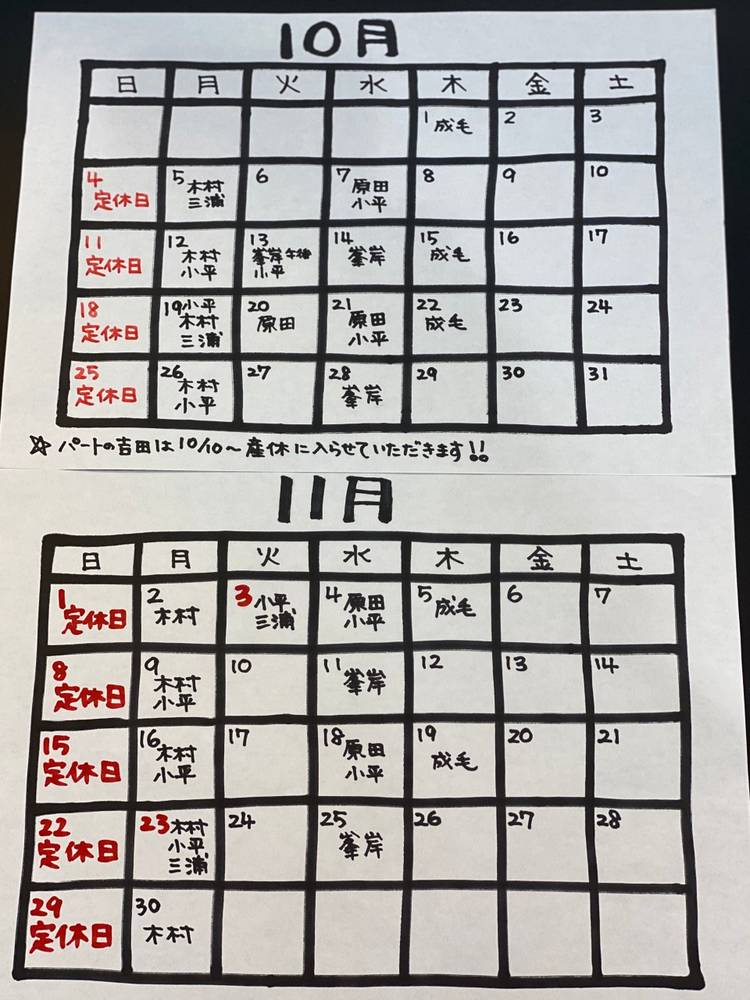 10月
日 月 火 水 木 金 土
1 成毛 2 3
4 定休日 5 木村 三浦 6 7 原田 小平 8 9 10
11 定休日 12 木村 小平 13 峯岸午後 小平 14 峯岸 15 成毛 16 17
18 定休日 19 小平 木村 三浦 20 原田 21 原田 小平 22 成毛 23 24
25 定休日 26 木村 小平 27 28 峯岸 29 30 31
☆ パートの吉田は10/10〜産休に入らせていただきます!!
11月
日 月 火 水 木 金 土
1 定休日 2 木村 3 小平 三浦 4 原田 小平 5 成毛 6 7
8 定休日 9 木村 小平 10 11 峯岸 12 13 14
15 定休日 16 木村 小平 17 18 原田 小平 19 成毛 20 21
22 定休日 23 木村 小平 三浦 24 25 峯岸 26 27 28
29 定休日 30 木村